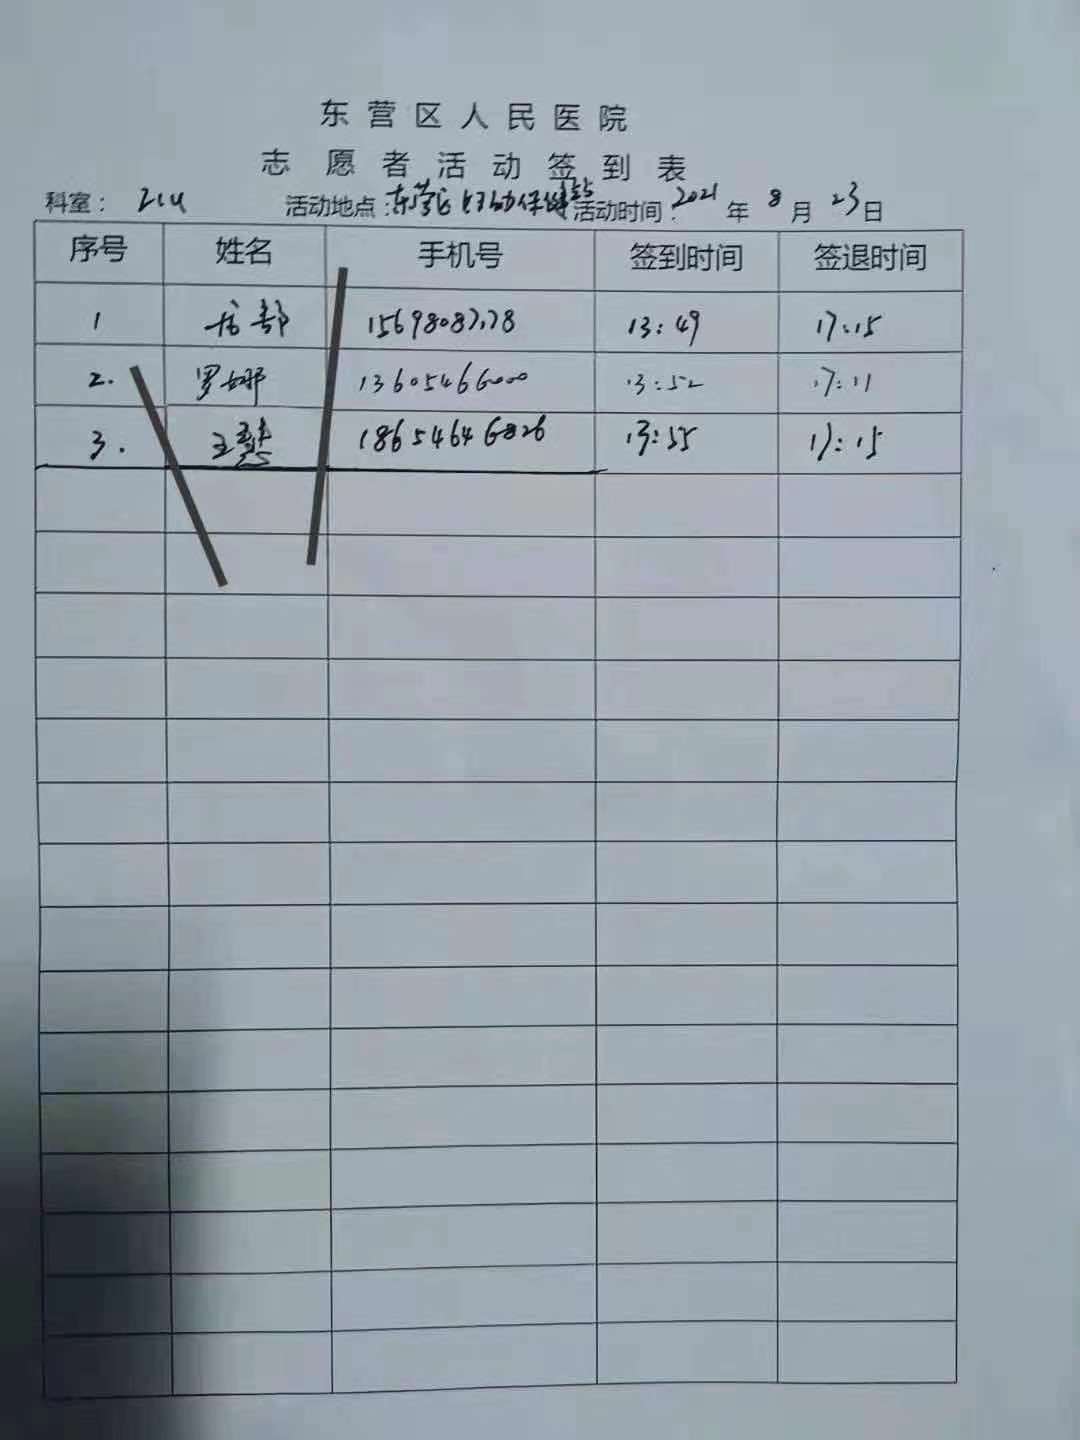 东营区人民医院
志愿者活动签到表
科室： ICU 活动地点：东营区妇幼保健 活动时间：2021年8月23日
序号 姓名 手机号 签到时间 签退时间
1 13:49 17:15
2. 罗娜 13605466000 13:52 17:11
3. 王慧 18654646826 13:55 17:15